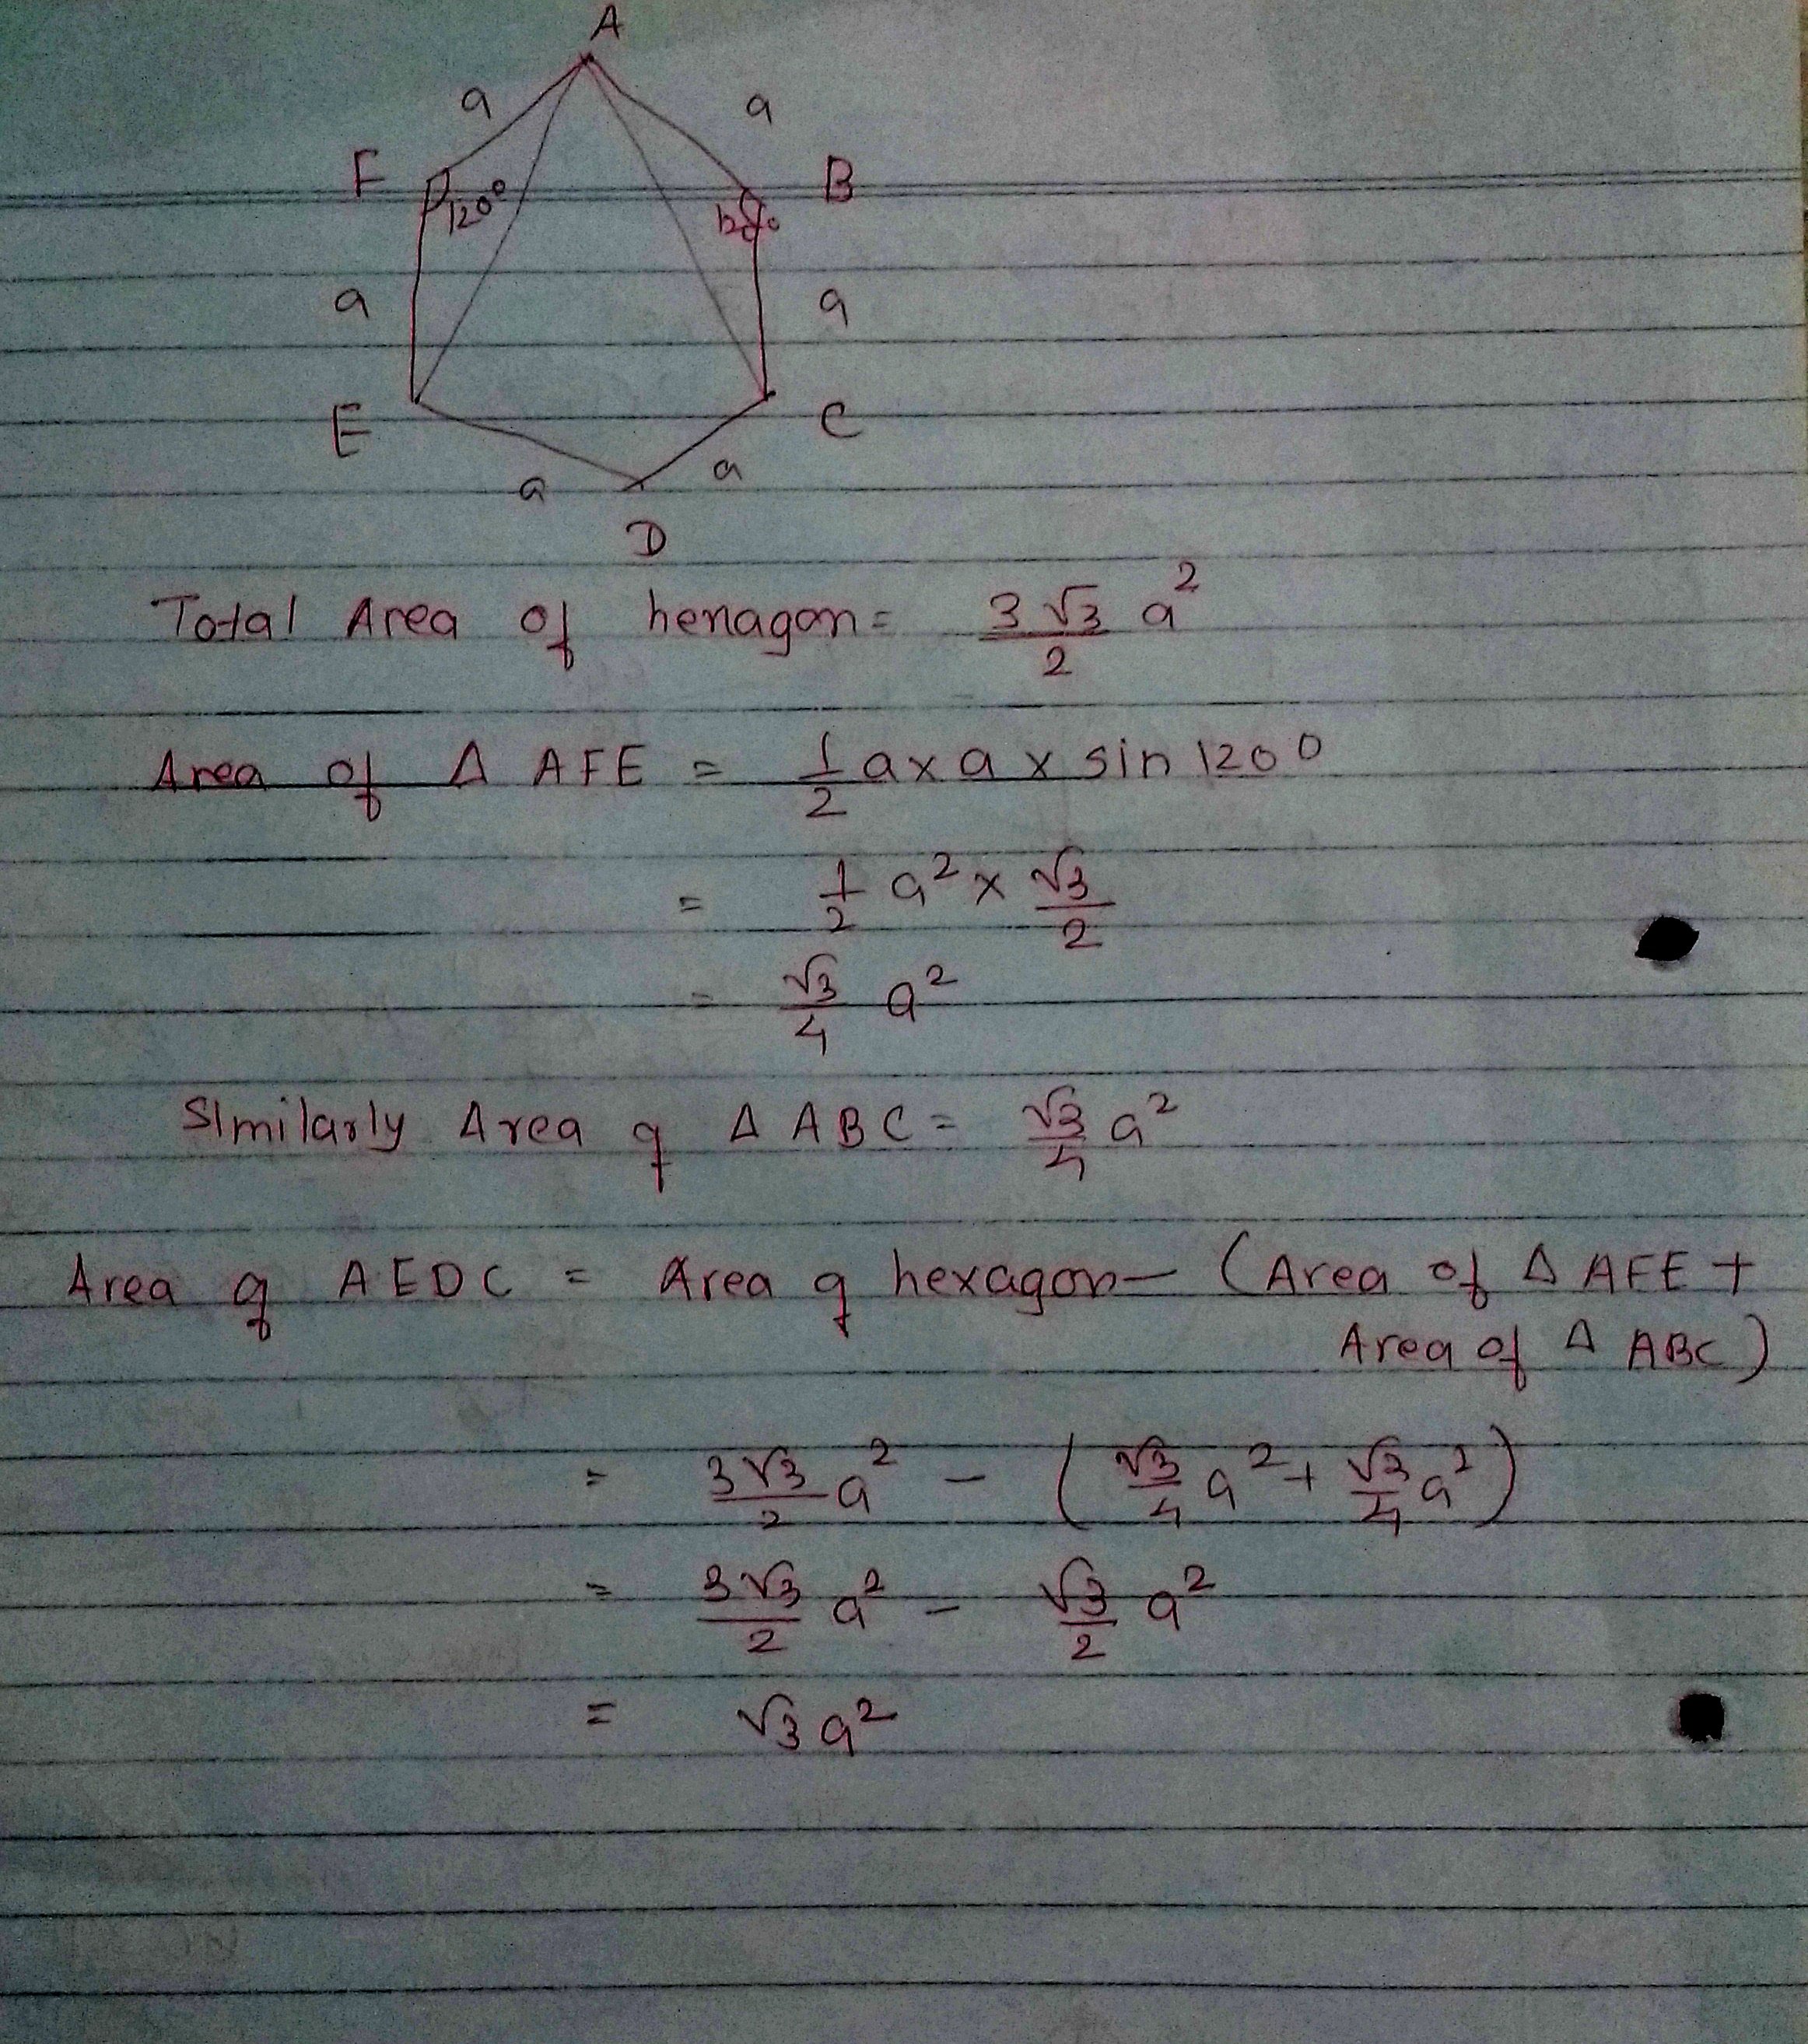 A
a a
F B
120° 120°
a a
E C
a a
D
Total Area of henagon = 3√3/2 a²
Area of Δ AFE = 1/2 a x a x sin 120°
= 1/2 a² x √3/2
= √3/4 a²
Similarly Area of Δ ABC = √3/4 a²
Area of AEDC = Area of hexagon – (Area of Δ AFE +
Area of Δ ABC)
= 3√3/2 a² – (√3/4 a² + √3/4 a²)
= 3√3/2 a² – √3/2 a²
= √3 a²